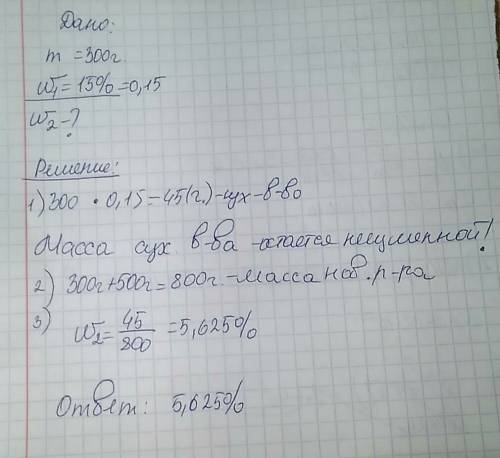 Дано:
m = 300г.
W1 = 15% = 0,15
W2 - ?
Решение:
1) 300 • 0,15 = 45(г.) - сух - в-во
Масса сух в-ва - остается неизменной!
2) 300г + 500г = 800г. - масса нов. р-ра
3) W2 = 45/800 = 5,625%
Ответ: 5,625%